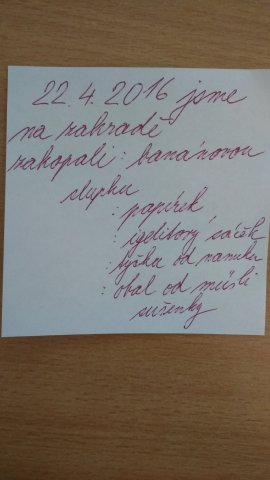 22. 4. 2016 jsme
na zahradě
zakopali: banánovou
slupku
: papírek
: igelitový sáček
: tyčku od nanuku
: obal od müsli
sušenky